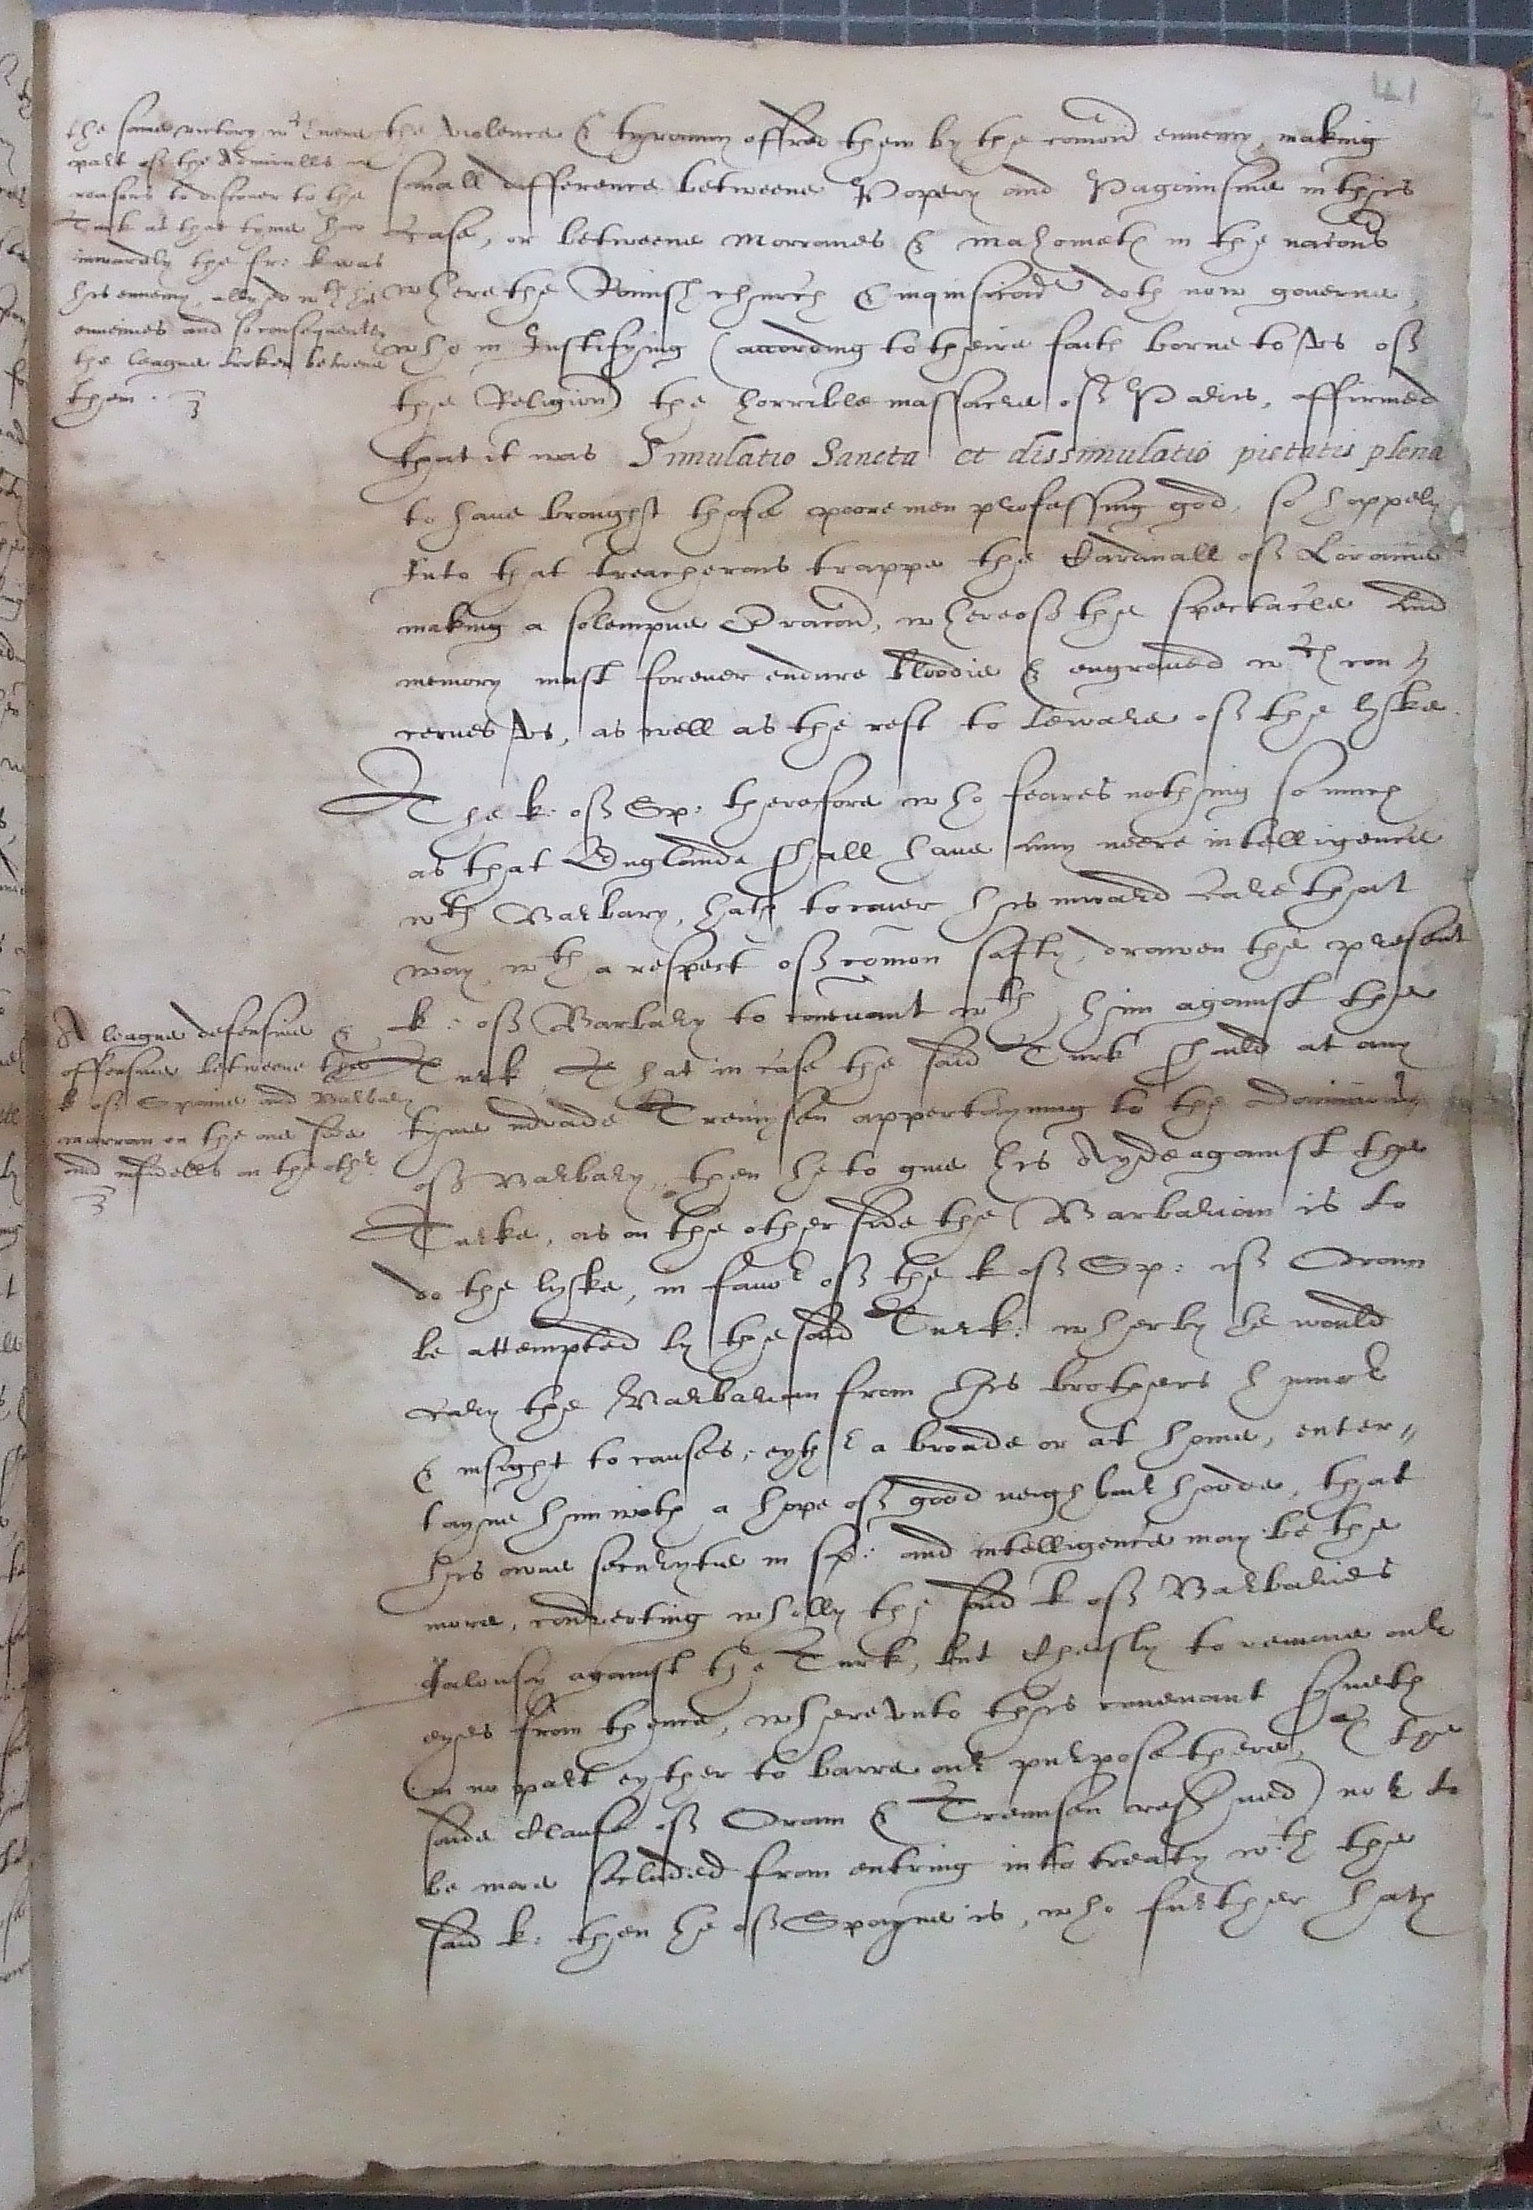 41
the same victory wch were
part of the Admiralls
reasons to discover to the
Turk at that tyme how
inwardly the fr: k was
his ennemy, allyed wth his
ennemies and so consequently
the league broken betwene
them.
the violence & tyranny offred them by the comon ennemy, making
small difference betweene Popery and Paganisme in this
Case, or betweene Marranes & mahomets in the nacons
where the Romish church & inquisicon doth now governe,
who in Justifying (according to theire faith borne to us off
the Religion) the horrible massacre off Paris, affirmed
that it was Simulatio Sancta et dissimulatio pietatis plena
to have brought those poore men professing god, so happely
Into that treacherous trappe the Cardinall off Loraine
making a solempne Oracon, whereoff the spectacle And
memory must forever endure bloodie & engraved wch con
cernes us, as well as the rest to beware off the lyke.
The k: off Sp: therefore who feares nothing so much
as that Englande shall have any neere intelligence
wth Barbary, hath to cover his inward Care that
way wth a respect off comon safty, drawen the present
k: off Barbary to covenant wth him against the
Turk, That in case the said Turk should at any
tyme invade Tremysen appertayning to the dominions
off Barbary, then he to give his Ayde against the
Turke, as on the other side the Barbarian is to
do the lyke, in favor off the k off Sp: iff Oran
be attempted by the said Turk: wherby he would
Cary the Barbarian from his brothers humor
& insight to causes, eyther a broade or at home, enter
tayne him with a hope off good neighburhoode, that
his owne securytie in sp: and intelligence may be the
more, converting wholly the said k off Barbaries
Jalousy against the Turk, but cheifly to remove our
eyes from thence, whereunto this covenant
in no part eyther to barre our purpose there, ( the
saide Clause off Oran & Tremisen reserved) nor to
be more secluded from entring into treaty wth the
said k: then he off Spayne is, who further hath
A league defensive &
offensive betweene the
k off Spaine and Barbary
marran on the one side
and infidells on the other